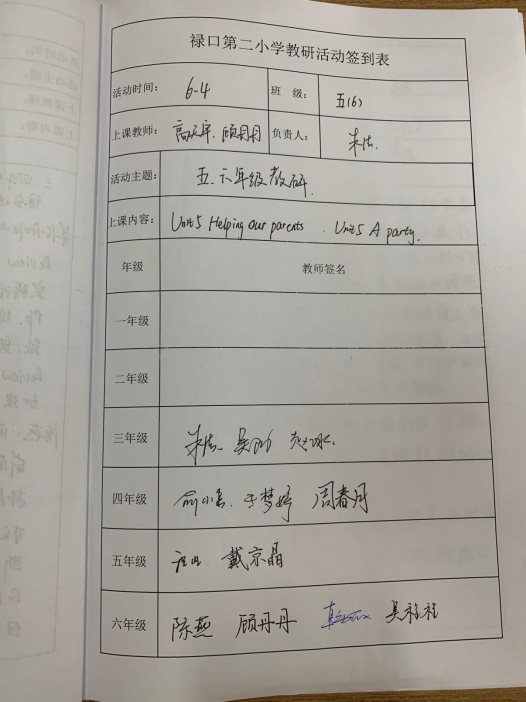 禄口第二小学教研活动签到表
活动时间: 6-4 班 级: 五(6)
上课教师: 顾丹丹 负责人: 朱洁.
活动主题: 五.六年级教研.
上课内容: Unit 5 Helping our parents . Unit 5 A party.
年级 教师签名
一年级
二年级
三年级 朱洁.
四年级 于梦婷 周春月
五年级 戴京晶
六年级 陈燕 顾丹丹 吴程程